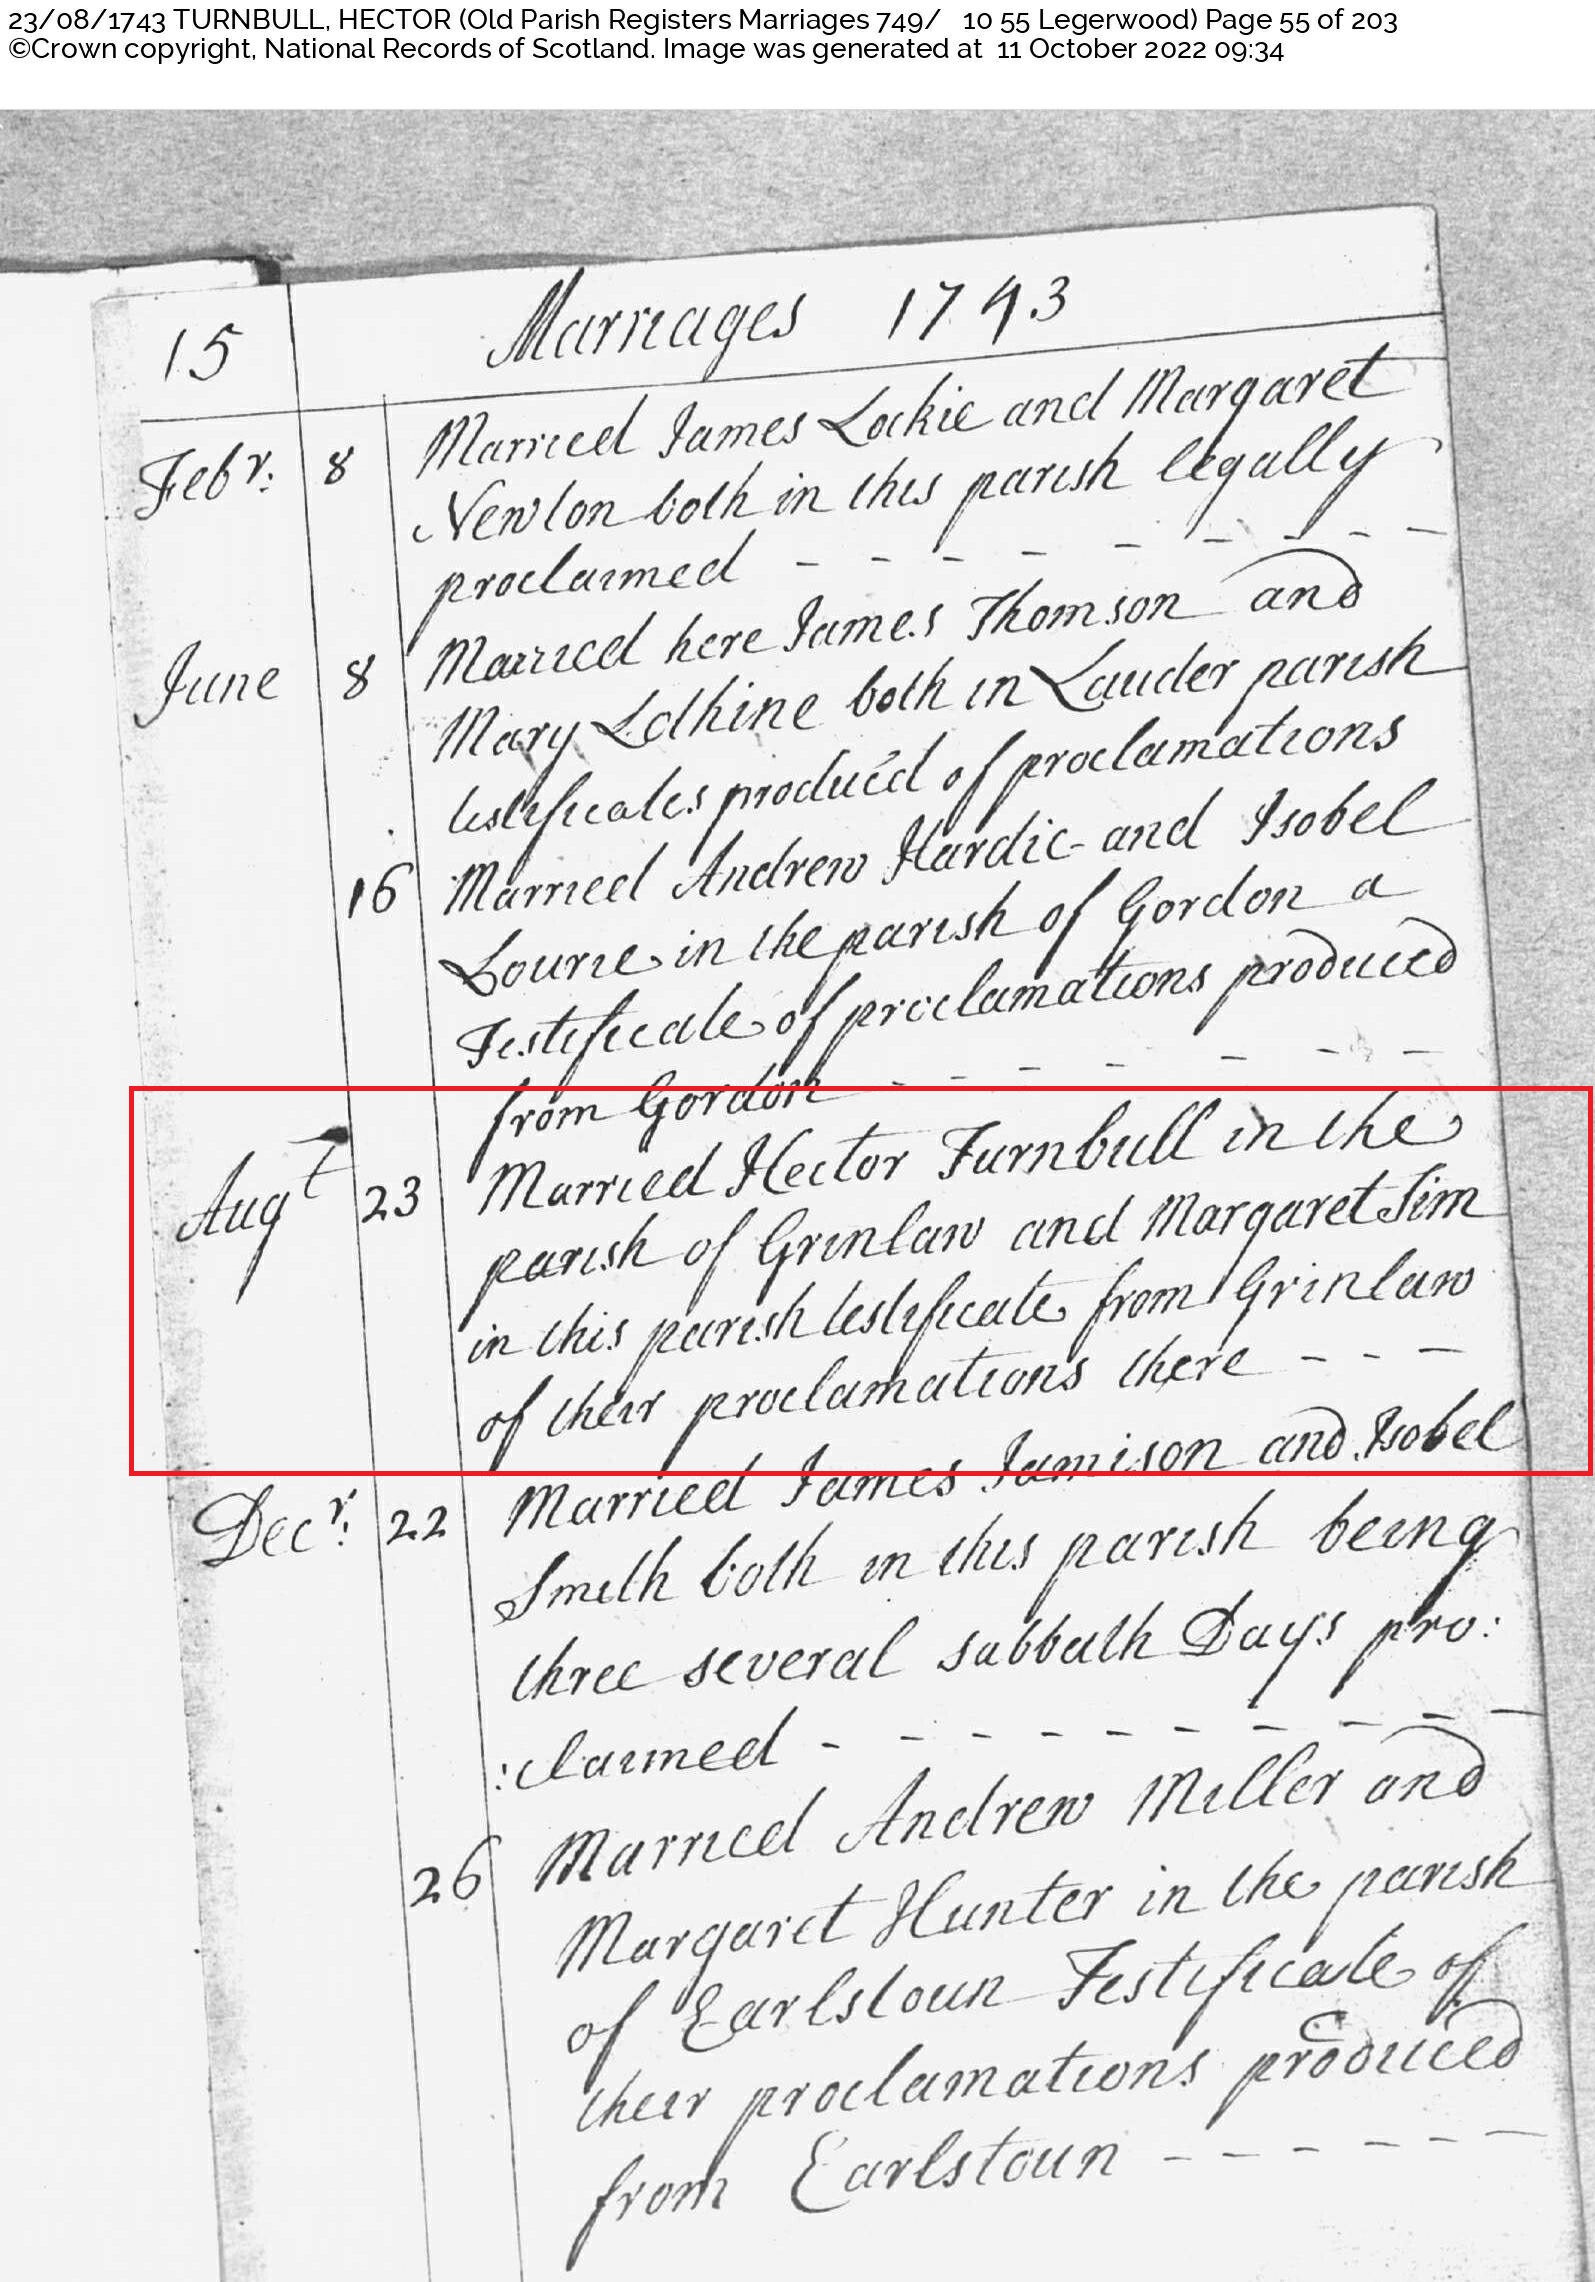 23/08/1743 TURNBULL, HECTOR (Old Parish Registers Marriages 749/ 10 55 Legerwood) Page 55 of 203
©Crown copyright, National Records of Scotland. Image was generated at 11 October 2022 09:34
15 Marriages 1743
Febr: 8 Married James Lockie and Margaret
Newton both in this parish legally
proclaimed - - - - - - - -
June 8 Married here James Thomson and
Mary both in Lauder parish
testificates produced of proclamations
16 Married Andrew Hardie and Isobel
Lourie in the parish of Gordon a
Testificate of proclamations produced
from Gordon - - - - - - -
Augt 23 Married Hector Turnbull in the
parish of Grinlaw and Margaret Sim
in this parish testificate from Grinlaw
of their proclamations there - - -
Decr: 22 Married James Jamison and Isobel
Smith both in this parish being
three several sabbath Days pro:
:claimed - - - - - - - - - -
26 Married Andrew Miller and
Margaret Hunter in the parish
of Earlstoun Testificate of
their proclamations produced
from Earlstoun - - - - - -